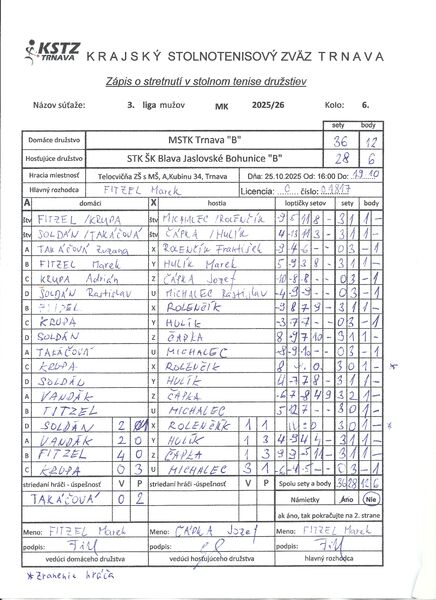 KSTZ TRNAVA KRAJSKÝ STOLNOTENISOVÝ ZVÄZ TRNAVA
Zápis o stretnutí v stolnom tenise družstiev
Názov súťaže: 3. liga mužov MK 2025/26 Kolo: 6.
sety body
Domáce družstvo MSTK Trnava "B" 36 12
Hosťujúce družstvo STK ŠK Blava Jaslovské Bohunice "B" 28 6
Hracia miestnosť Telocvičňa ZŠ s MŠ, A,Kubinu 34, Trnava Dňa: 25.10.2025 Od: 16:00 Do: 19.10
Hlavný rozhodca FITZEL Marek Licencia: C číslo: 01817
A domáci X hostia loptičky setov sety body
štv FITZEL/KRUPA štv MICHALEC/ROLENČÍK 3 1 1 -
štv SOLDÁN/TAKÁČOVÁ štv ČAPLA/HULÍK 3 1 1 -
A TAKÁČOVÁ Zuzana X ROLENČÍK František 0 3 - 1
B FITZEL Marek Y HULÍK Marek 5 9 3 8 - 3 1 1 -
C KRUPA Adrián Z ČAPLA Jozef 0 3 - 1
D SOLDÁN Rastislav U MICHALEC Rastislav -4 -9 -9 0 3 - 1
B FITZEL X ROLENČÍK -9 8 7 9 - 3 1 1 -
C KRUPA Y HULÍK -3 -7 -7 - - 0 3 - 1
D SOLDÁN Z ČAPLA 8 -9 7 10 - 3 1 1 -
A TAKÁČOVÁ U MICHALEC 0 3 - 1
C KRUPA X ROLENČÍK 3 0 1 - *
D SOLDÁN Y HULÍK 4 -7 7 8 - 3 1 1 -
A VANDÁK Z ČAPLA -6 7 -8 4 9 3 2 1 -
B FITZEL U MICHALEC 5 12 7 - - 3 0 1 -
D SOLDÁN 2 X ROLENČÍK 1 1 3 0 1 - *
A VANDÁK 2 0 Y HULÍK 1 3 4 -9 4 4 - 3 1 1 -
B FITZEL 4 0 Z ČAPLA 1 3 3 1 1 -
C KRUPA 0 3 U MICHALEC 3 1 0 3 - 1
striedaní hráči - úspešnosť V P striedaní hráči - úspešnosť V P Spolu sety a body 36 28 12 6
TAKÁČOVÁ 0 2 Námietky Áno Nie
ak áno, tak pokračujte na 2. strane
Meno: FITZEL Marek Meno: ČAPLA Jozef Meno: FITZEL Marek
podpis: podpis: podpis:
vedúci domáceho družstva vedúci hosťujúceho družstva hlavný rozhodca
*Zranenie hráča